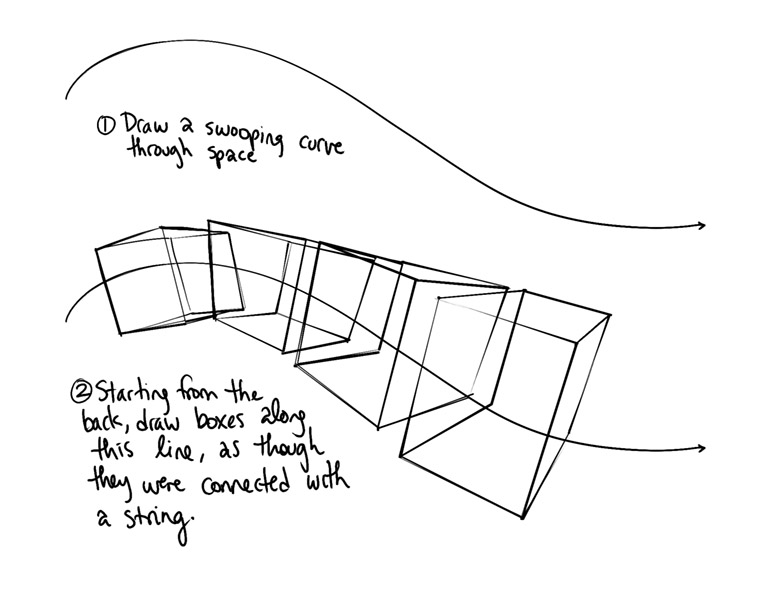 ① Draw a swooping curve
through space
② Starting from the
back, draw boxes along
this line, as though
they were connected with
a string.